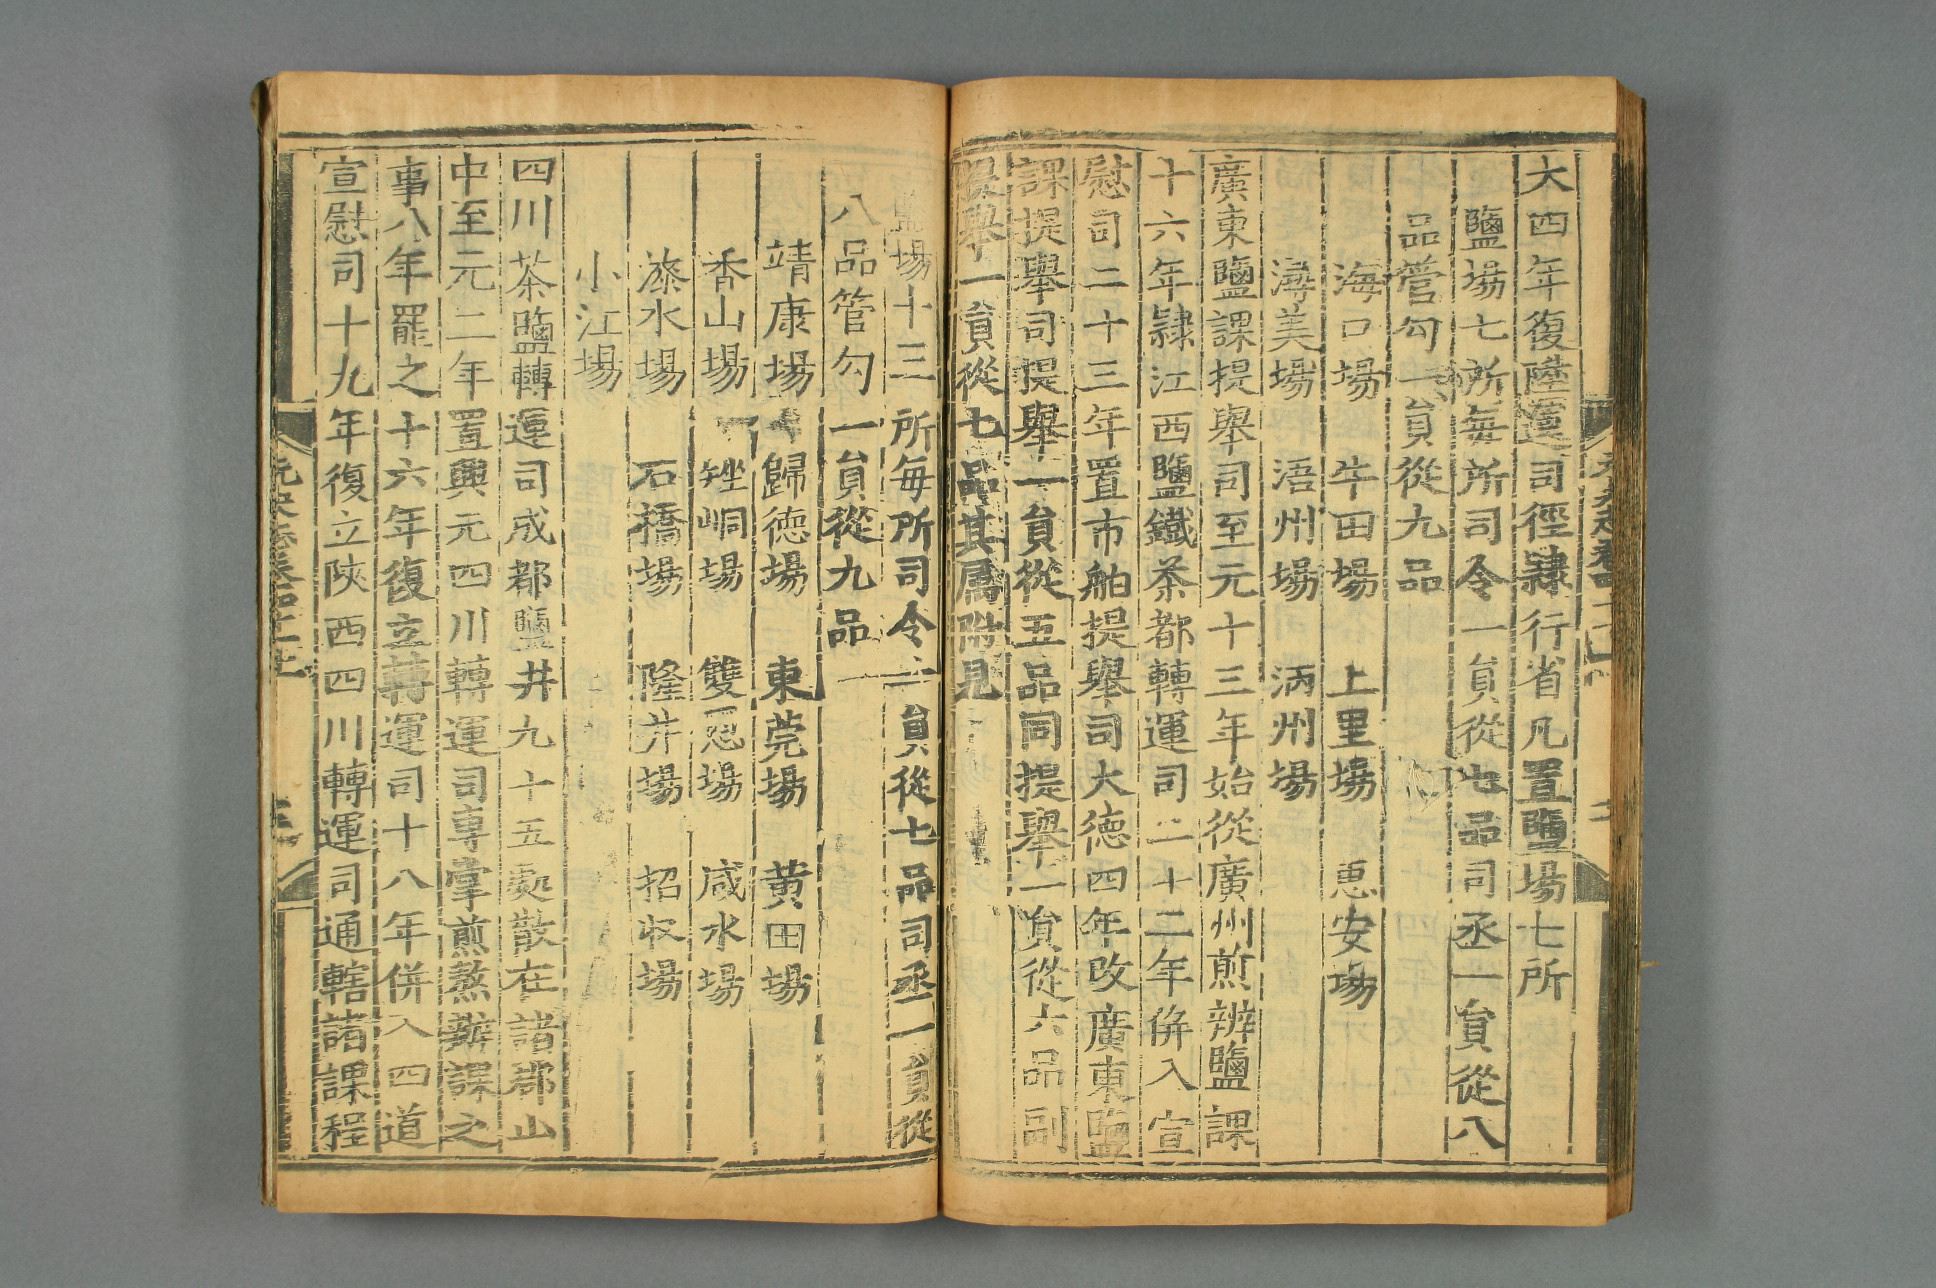 大四年復陞運司徑隷行省凡置鹽場七所
鹽場七所每所司令一員從七品司丞一員從八
品管勾一員從九品
海口場 牛田場 上里場 惠安場
潯美場 浯州場 㳽州場
廣東鹽課提舉司至元十三年始從廣州煎辨鹽課
十六年隷江西鹽鐵茶都轉運司二十二年併入宣
慰司二十三年置市舶提舉司大德四年改廣東鹽
課提舉司提舉一員從五品同提舉一員從六品副
提舉一員從七品其屬附見
鹽場十三所每所司令一員從七品司丞一員從
八品管勾一員從九品
靖康場 歸德場 東莞場 黃田場
香山場 矬峒場 雙恩場 咸水場
漆水場 石橋場 隆井場 招收場
小江場
四川茶鹽轉運司成都鹽井九十五處散在諸郡山
中至元二年置興元四川轉運司專掌煎熬辦課之
事八年罷之十六年復立轉運司十八年併入四道
宣慰司十九年復立陝西四川轉運司通轄諸課程